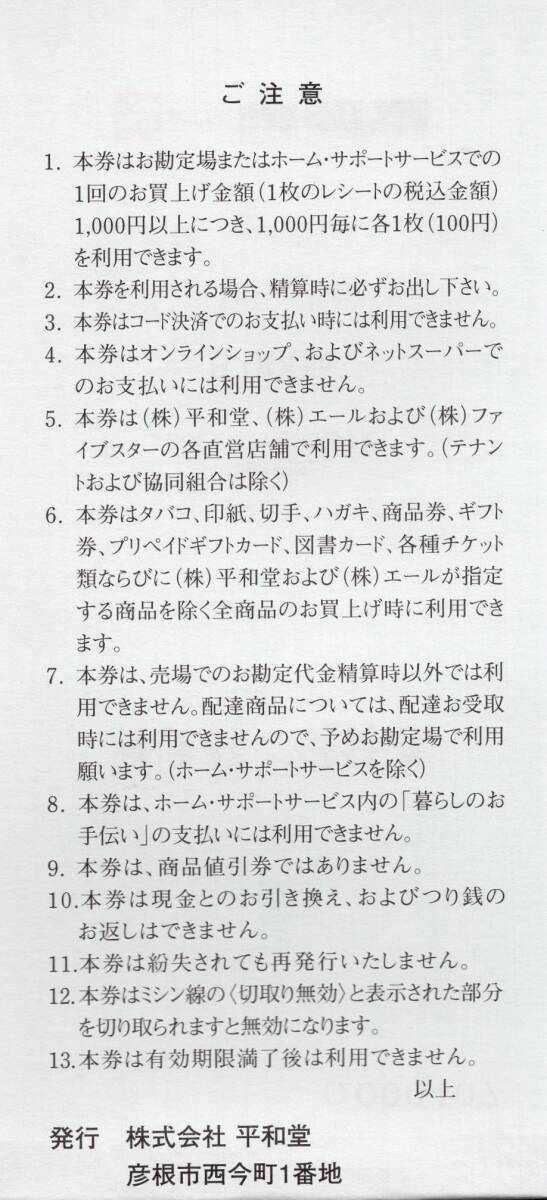 ご 注 意
1. 本券はお勘定場またはホーム・サポートサービスでの
1回のお買上げ金額（1枚のレシートの税込金額）
1,000円以上につき、1,000円毎に各1枚（100円）
を利用できます。
2. 本券を利用される場合、精算時に必ずお出し下さい。
3. 本券はコード決済でのお支払い時には利用できません。
4. 本券はオンラインショップ、およびネットスーパーで
のお支払いには利用できません。
5. 本券は（株）平和堂、（株）エールおよび（株）ファ
イブスターの各直営店舗で利用できます。（テナン
トおよび協同組合は除く）
6. 本券はタバコ、印紙、切手、ハガキ、商品券、ギフト
券、プリペイドギフトカード、図書カード、各種チケット
類ならびに（株）平和堂および（株）エールが指定
する商品を除く全商品のお買上げ時に利用でき
ます。
7. 本券は、売場でのお勘定代金精算時以外では利
用できません。配達商品については、配達お受取
時には利用できませんので、予めお勘定場で利用
願います。（ホーム・サポートサービスを除く）
8. 本券は、ホーム・サポートサービス内の「暮らしのお
手伝い」の支払いには利用できません。
9. 本券は、商品値引券ではありません。
10.本券は現金とのお引き換え、およびつり銭の
お返しはできません。
11.本券は紛失されても再発行いたしません。
12.本券はミシン線の〈切取り無効〉と表示された部分
を切り取られますと無効になります。
13.本券は有効期限満了後は利用できません。
以上
発行 株式会社 平和堂
彦根市西今町1番地